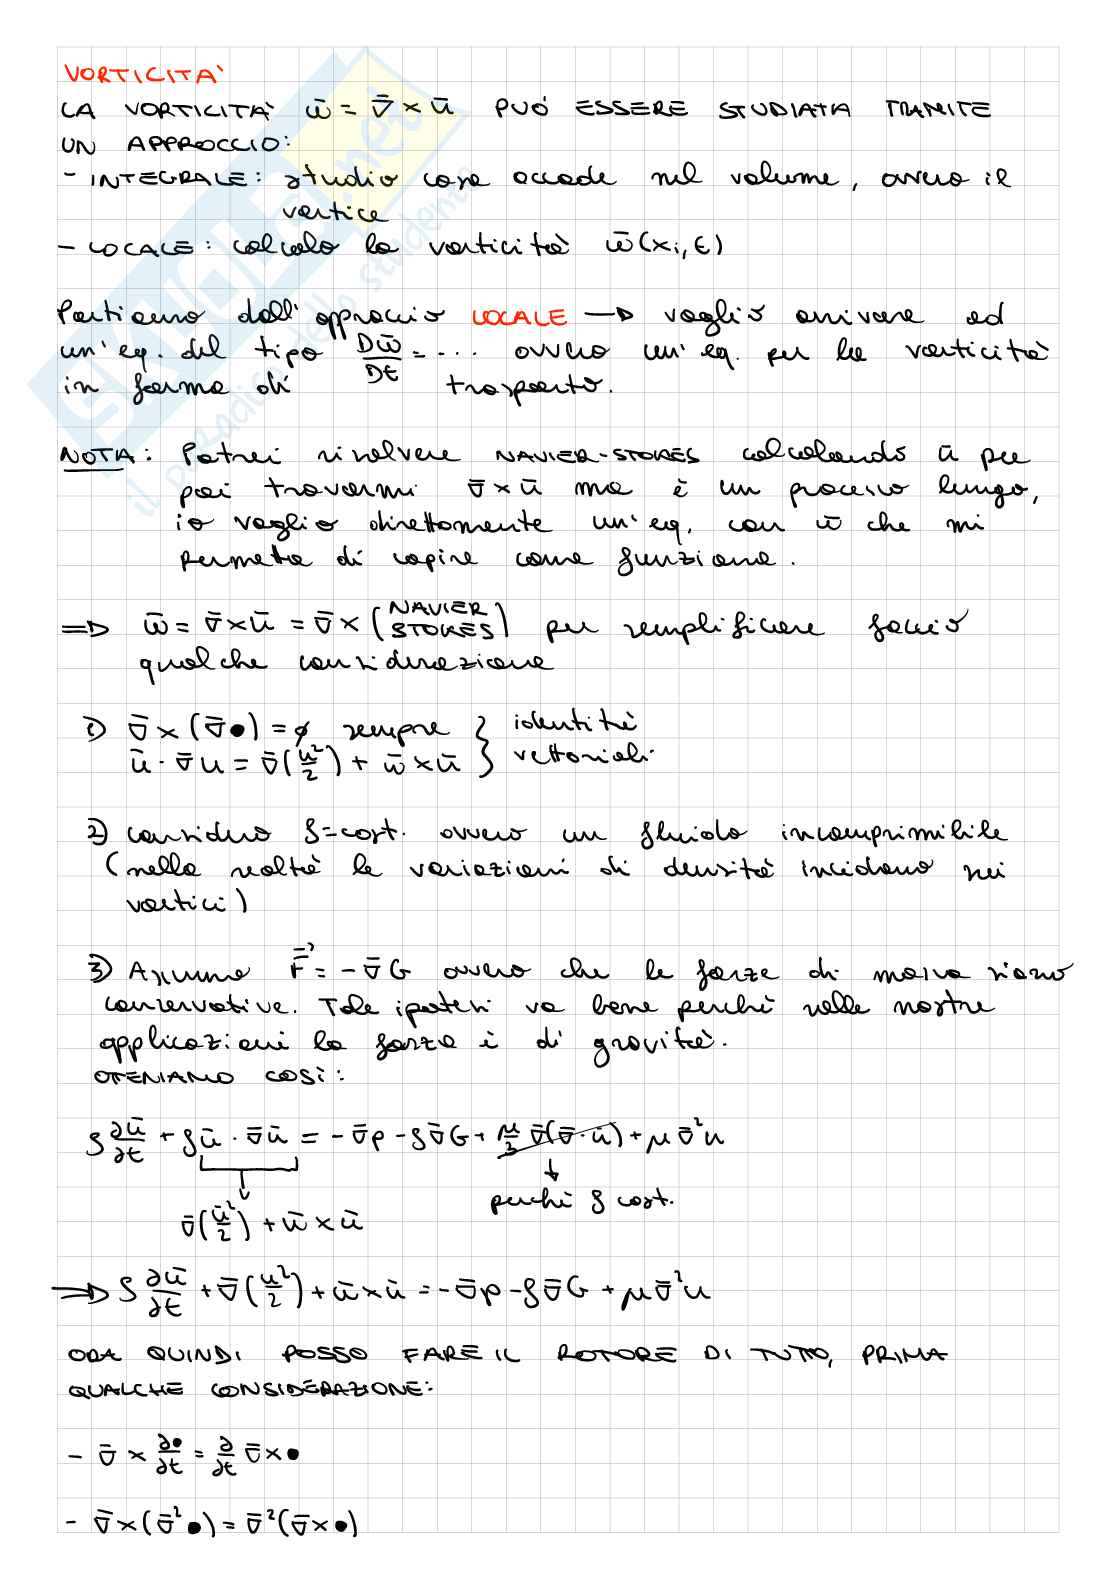 VORTICITA'
LA VORTICITA' ω̄ = ∇̄ × ū PUÓ ESSERE STUDIATA TRAMITE
UN APPROCCIO:
- INTEGRALE: studio cosa accade nel volume, ovvero il
vortice
- LOCALE: calcolo la vorticità ω̄(xi,t)
Partiamo dall'approccio LOCALE → voglio arrivare ad
un'eq. del tipo Dω̄/Dt = ... ovvero un'eq. per la vorticità
in forma di trasporto.
NOTA: Potrei risolvere NAVIER-STOKES calcolando ū per
poi trovarmi ∇̄×ū ma è un processo lungo,
io voglio direttamente un'eq. con ω̄ che mi
permetta di capire come funziona.
⇒ ω̄ = ∇̄×ū = ∇̄×(NAVIER STOKES) per semplificare faccio
qualche considerazione
1) ∇̄×(∇̄•) = ∅ sempre } identità
ū·∇̄u = ∇̄(u²/2) + ω̄×ū } vettoriali
2) considero ρ=cost. ovvero un fluido incomprimibile
(nella realtà le variazioni di densità incidono sui
vortici)
3) Assumo F̄ = -∇̄G ovvero che le forze di massa siano
conservative. Tale ipotesi va bene perchè nelle nostre
applicazioni la forza è di gravità.
OTENIAMO COSÌ:
ρ ∂ū/∂t + ρū·∇̄ū = -∇̄p - ρ∇̄G + μ/3 ∇̄(∇̄·ū) + μ∇̄²u
perchè ρ cost.
∇̄(ū²/2) + ω̄×ū
⇒ ρ ∂ū/∂t + ∇̄(u²/2) + ω̄×ū = -∇̄p - ρ∇̄G + μ∇̄²u
ORA QUINDI POSSO FARE IL ROTORE DI TUTTO, PRIMA
QUALCHE CONSIDERAZIONE:
- ∇̄ × ∂•/∂t = ∂/∂t ∇̄×•
- ∇̄×(∇̄²•) = ∇̄²(∇̄×•)
SKUOLA.net
il paradiso dello studente